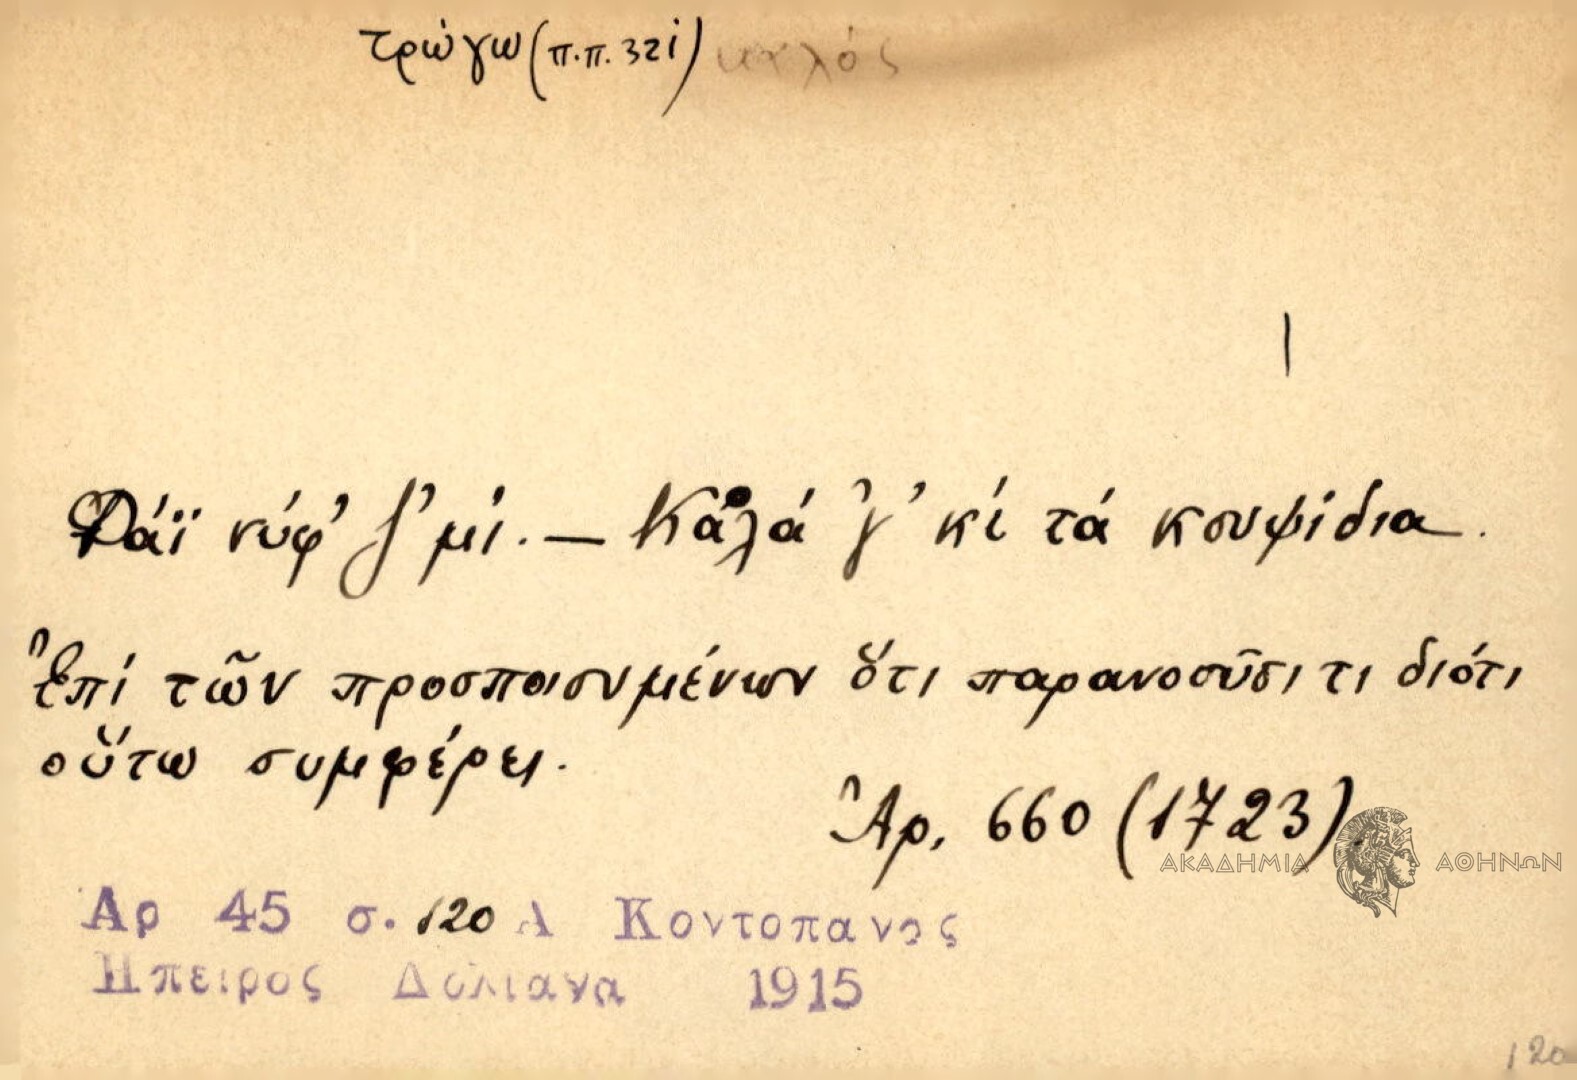 τρώγω (π.π. 32i)
Φάϊ νύφ' ζ' μί. — Καλά 'γ' κί τά κουψίδια.
Ἐπί τῶν προσποιουμένων ὅτι παρανοοῦσι τι διότι
οὕτω συμφέρει.
Ἀρ. 660 (1723)
ΑΚΑΔΗΜΙΑ ΑΘΗΝΩΝ
Αρ 45 σ. 120 Α Κοντοπανος
Ηπειρος Δολιανα 1915
120